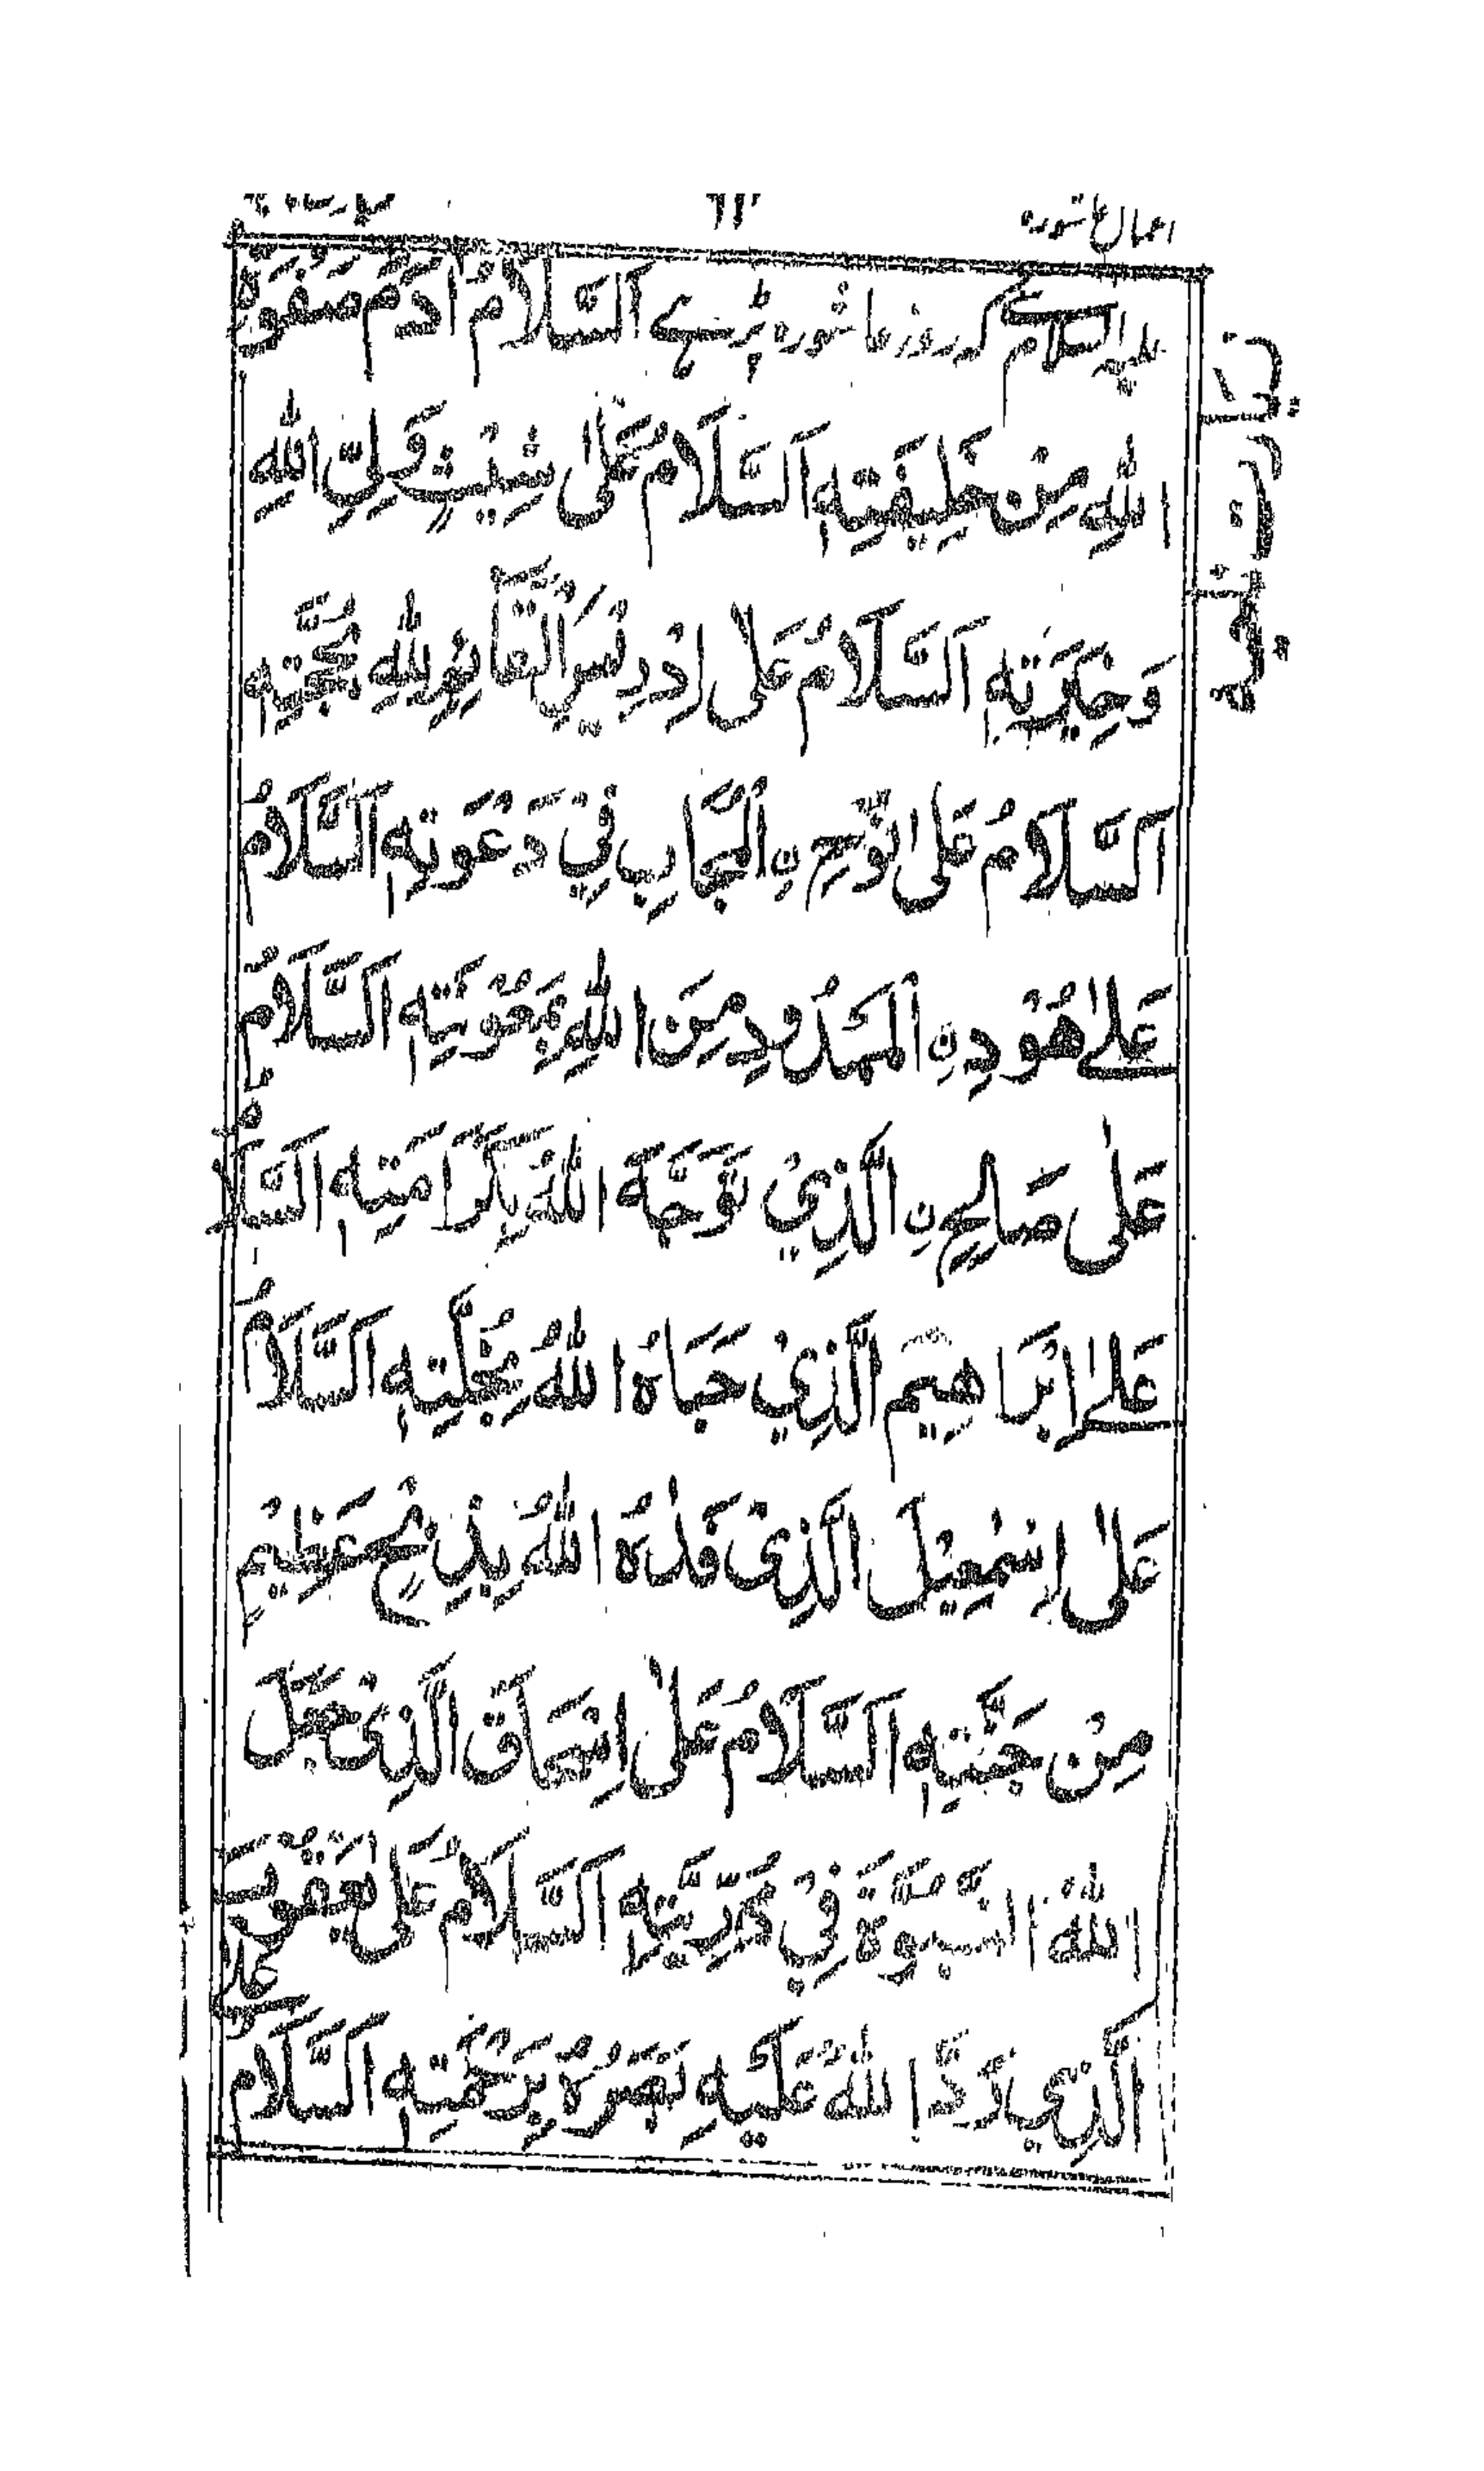 اعمال عاشورہ
علیہ السلام کہ روز عاشورہ پڑہے اَلسَّلَامُ اٰدَمَ صَفْوَةِ
اللهِ مِنْ خَلِيفَتِهِ اَلسَّلَامُ عَلٰى شِيْثٍ وَلِيِّ اللهِ
وَخِيَرَتِهِ اَلسَّلَامُ عَلٰى اِدْرِيْسَ الْقَائِمِ لِلّٰهِ بِحُجَّتِهِ
اَلسَّلَامُ عَلٰى نُوْحِ نِ الْمُجَابِ فِيْ دَعْوَتِهِ اَلسَّلَامُ
عَلٰے هُوْدِ نِ الْمَمْدُوْدِ مِنَ اللهِ بِمَعُوْنَتِهِ اَلسَّلَامُ
عَلٰى صَالِحِ نِ الَّذِيْ تَوَجَّهَ اللهُ بِكَرَامَتِهِ اَلسَّلَامُ
عَلٰے اِبْرَاهِيْمَ الَّذِيْ حَبَاهُ اللهُ بِخُلَّتِهِ اَلسَّلَامُ
عَلٰى اِسْمٰعِيْلَ الَّذِىْ فَدٰهُ اللهُ بِذِبْحٍ عَظِيْمٍ
مِنْ جَنَّتِهِ اَلسَّلَامُ عَلٰى اِسْحَاقَ الَّذِىْ جَعَلَ
اللهُ النُّبُوَّةَ فِيْ ذُرِّيَّتِهِ اَلسَّلَامُ عَلٰى يَعْقُوْبَ
الَّذِيْ رَدَّ اللهُ عَلَيْهِ بَصَرَهُ بِرَحْمَتِهِ اَلسَّلَامُ